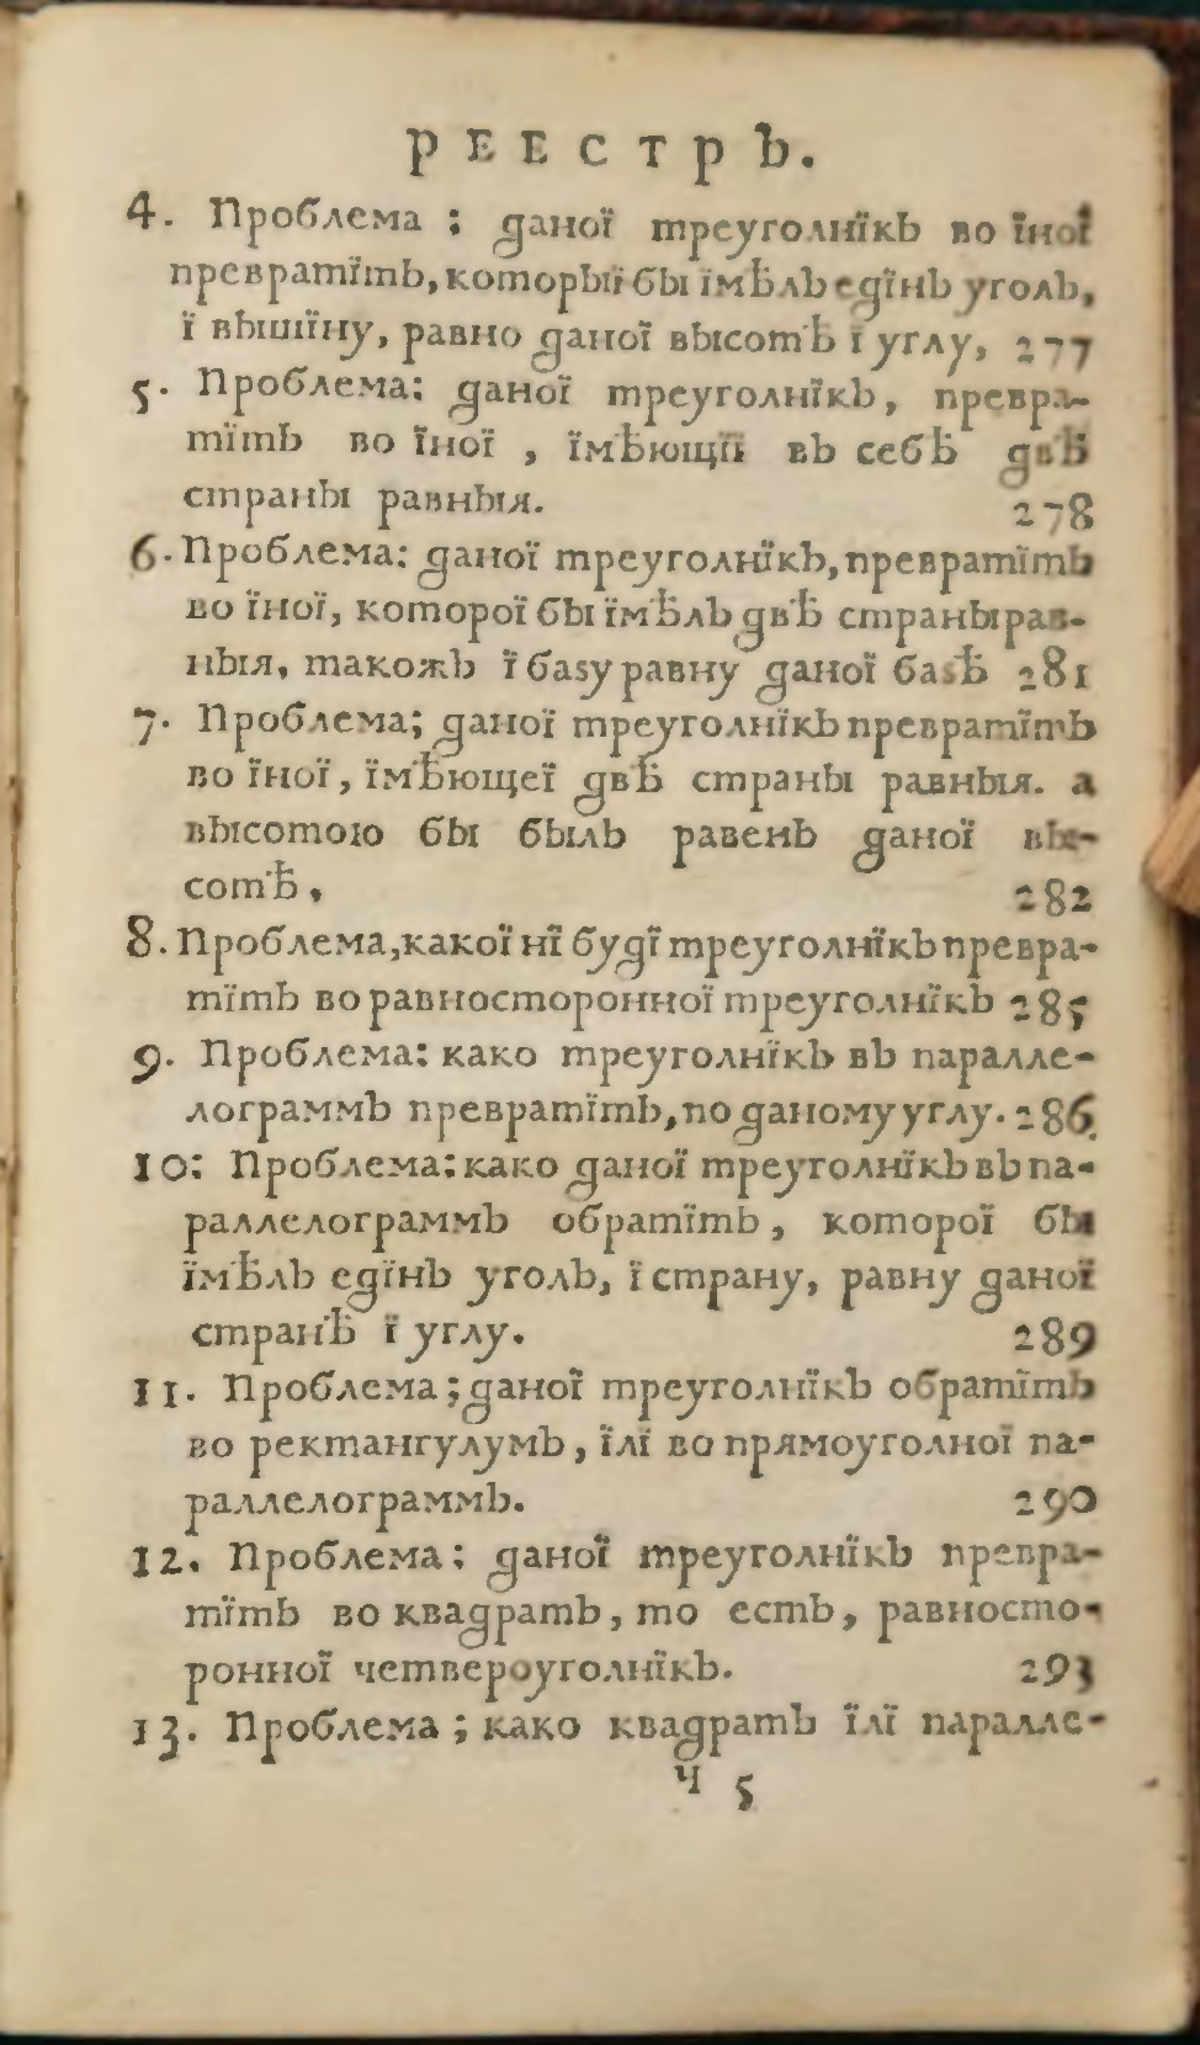 РЕЕСТРЪ.
4. Проблема : даної треуголнїкъ во їної
превратїть, которыї бы їмѣлъ едїнъ уголъ,
ї вышїну, равно даної высотѣ ї углу, 277
5. Проблема: даної треуголнїкъ, превра-
тїть во їної , їмѣющїї въ себѣ двѣ
страны равныя. 278
6. Проблема: даної треуголнїкъ, превратїть
во їної, которої бы їмѣлъ двѣ страны рав-
ныя, такожъ ї баѕу равну даної баѕѣ 281
7. Проблема; даної треуголнїкъ превратїть
во їної, їмѣющеї двѣ страны равныя. а
высотою бы былъ равенъ даної вы-
сотѣ, 282
8. Проблема, какої нї будї треуголнїкъ превра-
тїть во равносторонної треуголнїкъ 285
9. Проблема: како треуголнїкъ въ паралле-
лограммъ превратїть, по даному углу. 286.
10: Проблема: како даної треуголнїкъ въ па-
раллелограммъ обратїть, которої бы
їмѣлъ едїнъ уголъ, ї страну, равну даної
странѣ ї углу. 289
11. Проблема; даної треуголнїкъ обратїть
во ректангулумъ, їлї во прямоуголної па-
раллелограммъ. 290
12. Проблема: даної треуголнїкъ превра-
тїть во квадратъ, то есть, равносто-
ронної четвероуголнїкъ. 293
13. Проблема; како квадратъ їлї паралле-
Ч 5